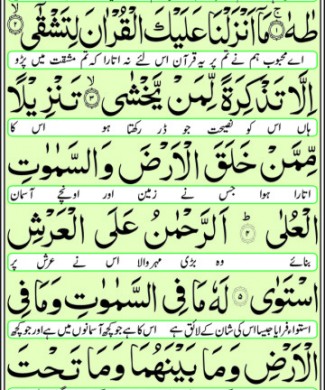 طٰهٰ ۚ﴿۱﴾ مَاۤ اَنْزَلْنَا عَلَیْكَ الْقُرْاٰنَ لِتَشْقٰۤی ۙ﴿۲﴾
اے محبوب ہم نے تم پر یہ قرآن اس لئے نہ اتارا کہ تم مشقت میں پڑو
اِلَّا تَذْكِرَةً لِّمَنْ یَّخْشٰی ۙ﴿۳﴾ تَنْزِیْلًا
ہاں اس کو نصیحت جو ڈر رکھتا ہو اس کا
مِّمَّنْ خَلَقَ الْاَرْضَ وَ السَّمٰوٰتِ
اتارا ہوا جس نے زمین اور اونچے آسمان
الْعُلٰی ؕ﴿۴﴾ اَلرَّحْمٰنُ عَلَی الْعَرْشِ
بنائے وہ بڑی مہر والا اس نے عرش پر
اسْتَوٰی ﴿۵﴾ لَهٗ مَا فِی السَّمٰوٰتِ وَ مَا فِی
استواء فرمایا جیسا اس کی شان کے لائق ہے اس کا ہے جو کچھ آسمانوں میں ہے اور جو کچھ
الْاَرْضِ وَ مَا بَیْنَهُمَا وَ مَا تَحْتَ